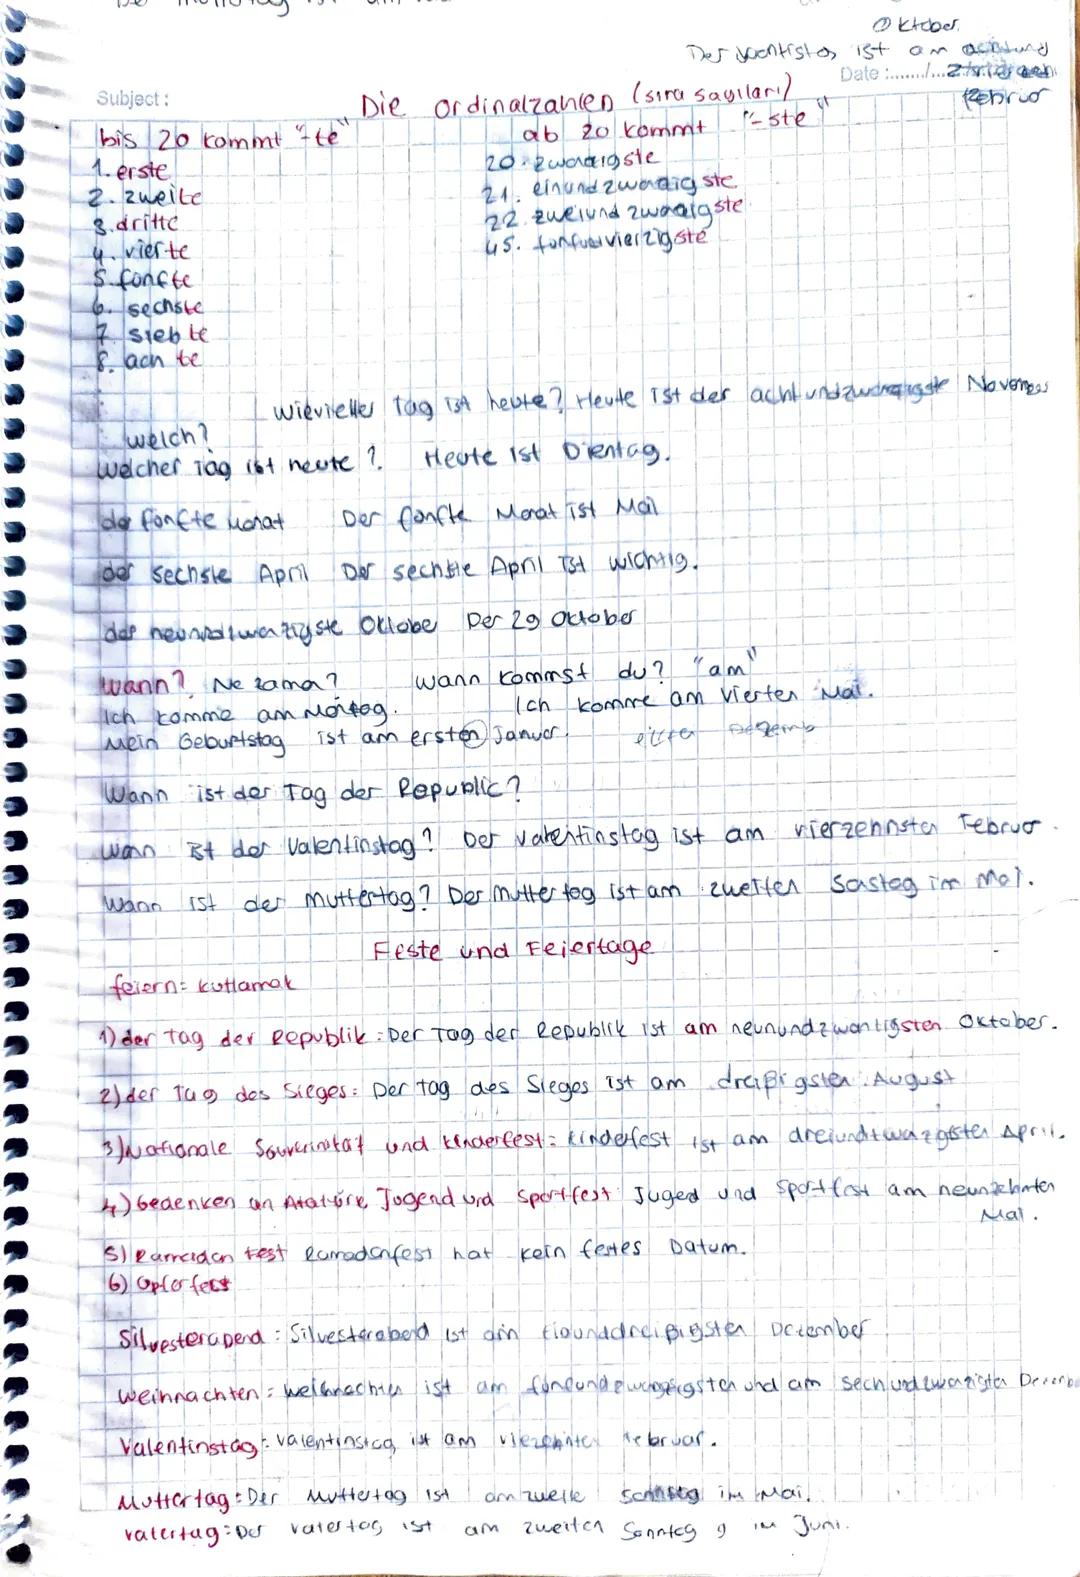 Oktober
Der ist am
Subject: Date:......../...
Februar
Die Ordinalzahlen (sıra sayıları)
bis 20 kommt "-te" ab 20 kommt "-ste"
1. erste
2. zweite
3. dritte
4. vierte
5. fonfte
6. sechste
7. siebte
8. achte
20. zwanzigste
21. einundzwanzigste
22. zweiundzwanzigste
45. fonfundvierzigste
Wievielter Tag ist heute? Heute ist der achtundzwanzigste November
welch?
Welcher Tag ist heute? Heute ist Dientag.
der fonfte Monat Der fonfte Monat ist Mai
der sechste April Der sechste April ist wichtig.
der neunundzwanzigste Oktobe Der 29 Oktober
Wann? Ne zaman? Wann kommst du? "am"
Ich komme am Montag. Ich komme am vierten Mai.
Mein Geburtstag ist am ersten Januar.
Wann ist der Tag der Republic?
Wann ist der Valentinstag? Der Valentinstag ist am vierzehnsten Februar.
Wann ist der Muttertag? Der Muttertag ist am zweiten im Mai.
Feste und Feiertage
feiern= kutlamak
1) der Tag der Republik: Der Tag der Republik ist am neunundzwantigsten Oktober.
2) der Tag des Sieges: Der Tag des Sieges ist am dreißigsten August
3) Nationale und Kinderfest: Kinderfest ist am dreiundzwanzigsten April.
4) Gedenken an Jugend und Sportfest Juged und Sportfest am neunzehnten
Mai.
5) Ramadan fest Ramadanfest hat kein festes Datum.
6) Opferfest
Silvesterabend: Silvesterabend ist am Dezember
Weihnachten: Weihnachten ist am fünfundzwanzigsten und am
Valentinstag: Valentinstag ist am vierzehnten Februar.
Muttertag: Der Muttertag ist am zweite Sonntag im Mai.
Vatertag: Der Vatertag ist am zweiten Sonntag im Juni.